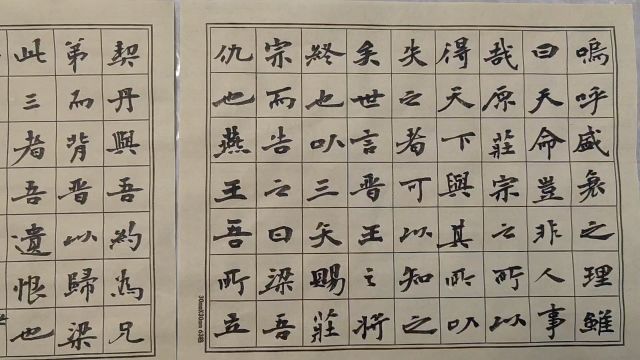 嗚呼盛衰之理雖
曰天命豈非人事
哉原莊宗之所以
得天下與其所以
失之者可以知之
矣世言晉王之將
終也以三矢賜莊
宗而告之曰梁吾
仇也燕王吾所立
30mmX30mm 63格
契丹與吾約為兄
弟而背晉以歸梁
此三者吾遺恨也